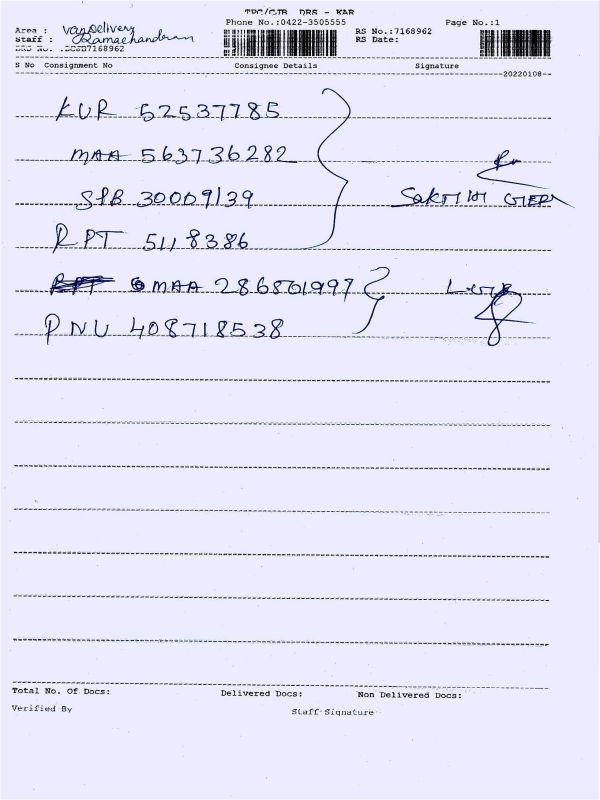 TPC/CJB DRS - KAR
Phone No.:0422-3505555 Page No.:1
Area : van Delivery RS No.:7168962
Staff : Ramachandran RS Date:
DRS No. 7168962
S No Consignment No Consignee Details Signature
20220108
KUR 52537785
MAA 563736282
SPB 30009139 SAKTHI GEAR
RPT 5118386
MAA 286801997
PNU 408718538
Total No. Of Docs: Delivered Docs: Non Delivered Docs:
Verified By Staff Signature